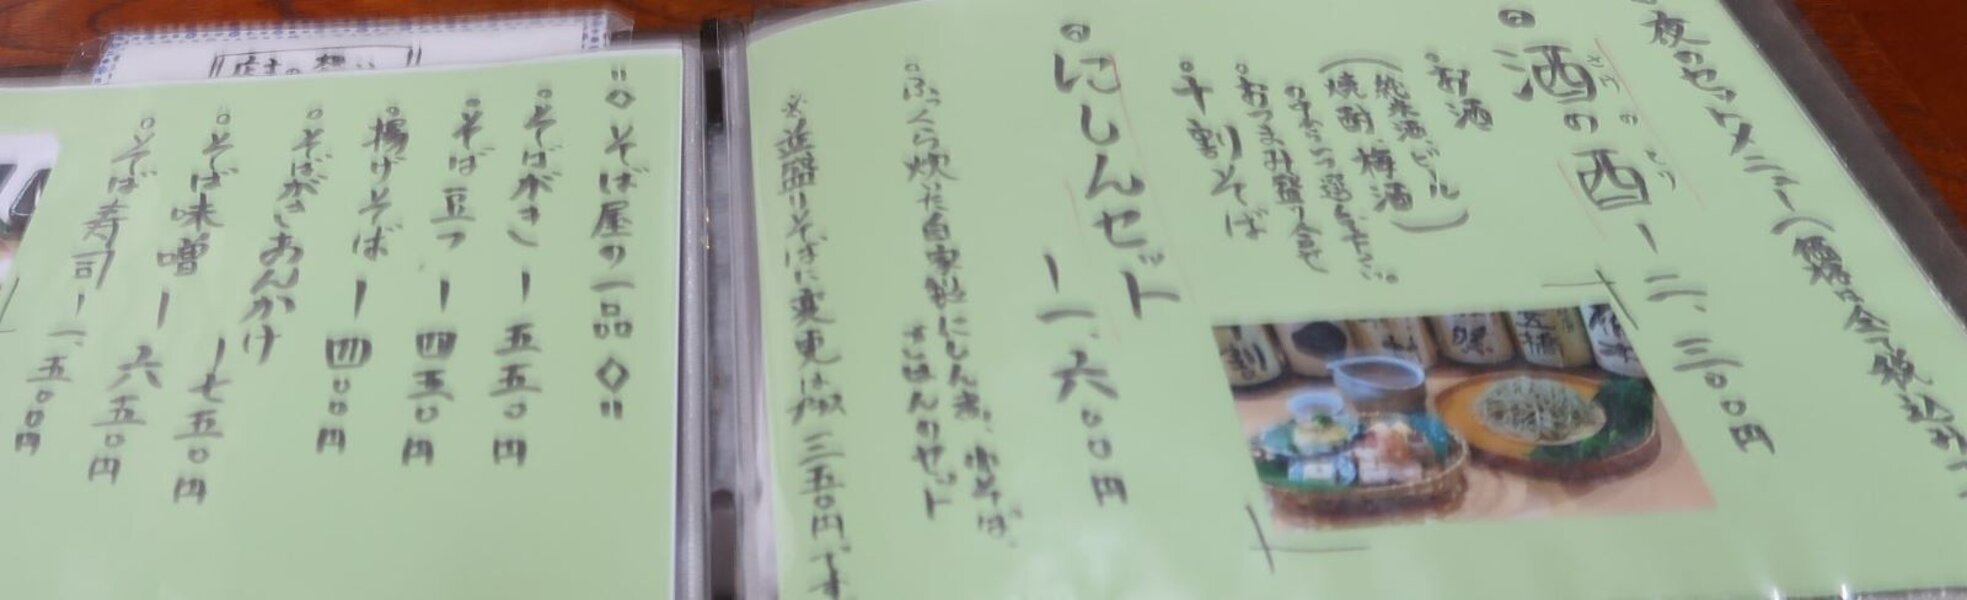 夜のセットメニュー(価格は全て税込み
酒の酉 ー 二、三〇〇円
さけのとり
お酒
(純米酒、ビール
焼酎、梅酒)
の中から一つ選んで下さい。
おつまみ盛り合せ
十割そば
にしんセット
ー 一、六〇〇円
ふっくら炊た自家製にしん煮、小そば、
ごはんのセット
※並盛りそばに変更は
三五〇円です
=◇そば屋の一品◇=
そばがき ー 五五〇円
そば豆フ ー 四五〇円
揚げそば ー 四〇〇円
そばがきあんかけ
ー 七五〇円
そば味噌 ー 六五〇円
そば寿司 ー 一、五〇〇円
十割